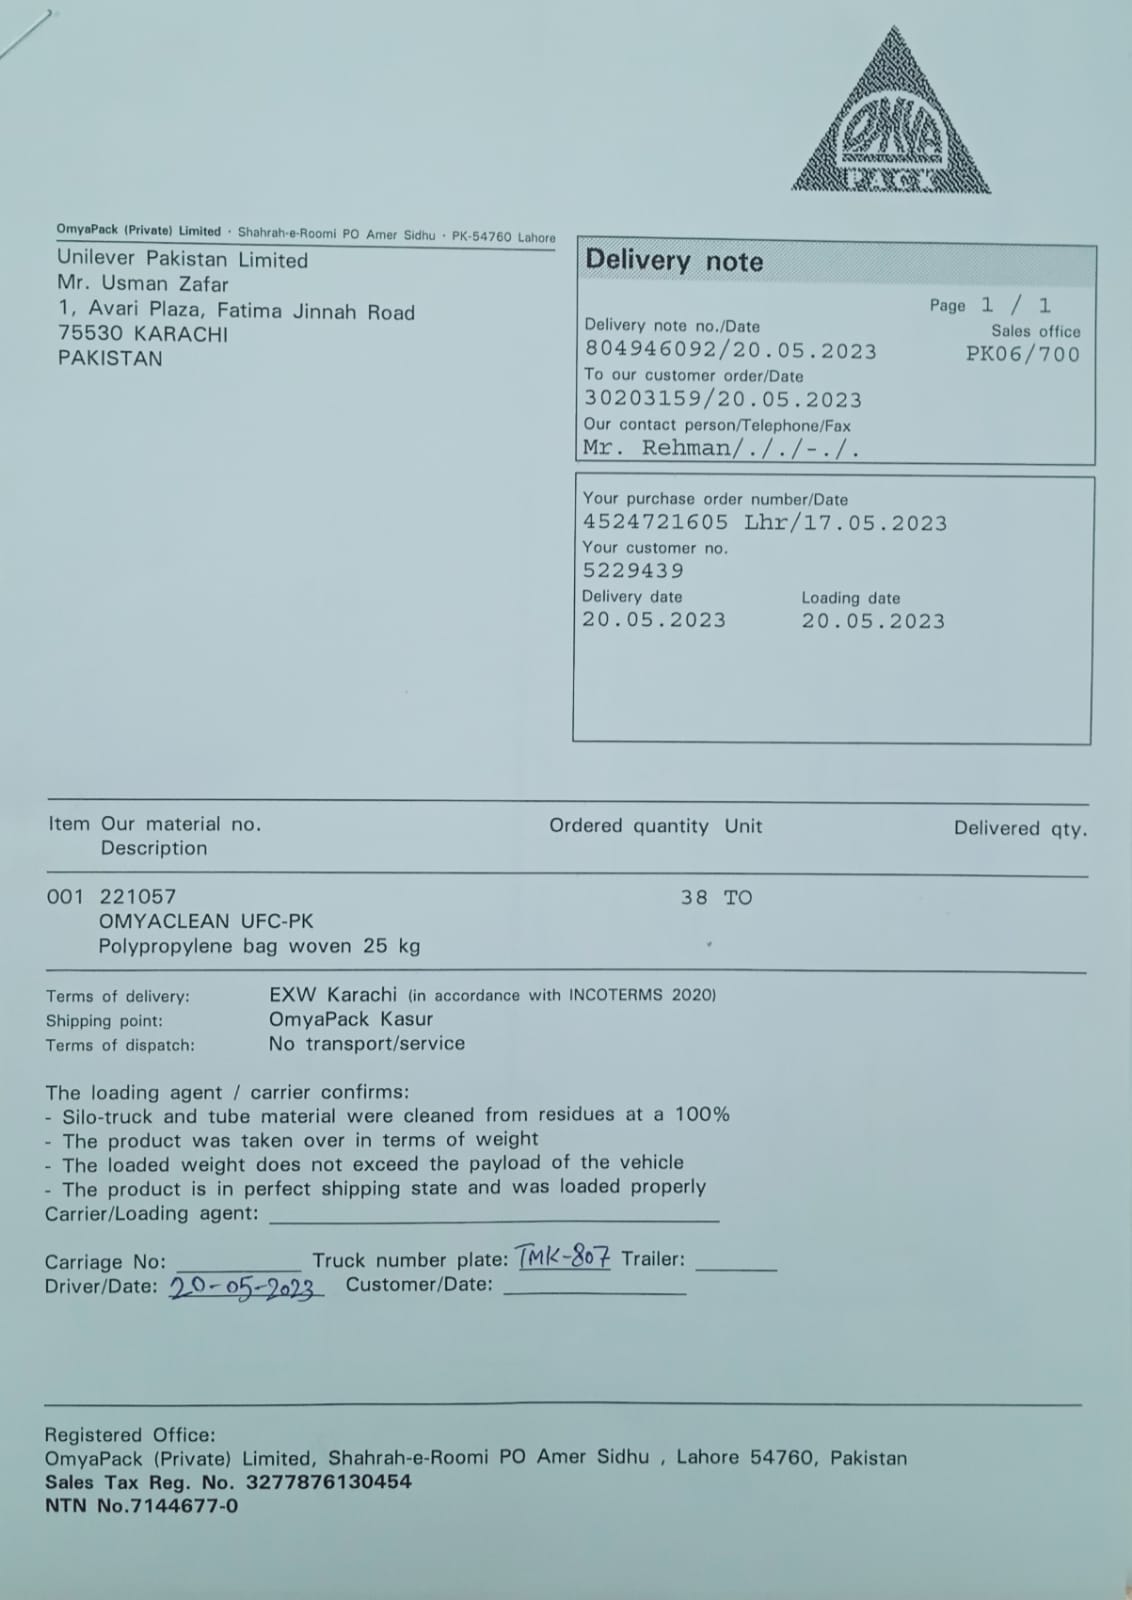 OMYA
PACK
OmyaPack (Private) Limited · Shahrah-e-Roomi PO Amer Sidhu · PK-54760 Lahore
Unilever Pakistan Limited
Mr. Usman Zafar
1, Avari Plaza, Fatima Jinnah Road
75530 KARACHI
PAKISTAN
Delivery note
Page 1 / 1
Delivery note no./Date Sales office
804946092/20.05.2023 PK06/700
To our customer order/Date
30203159/20.05.2023
Our contact person/Telephone/Fax
Mr. Rehman/././-./.
Your purchase order number/Date
4524721605 Lhr/17.05.2023
Your customer no.
5229439
Delivery date Loading date
20.05.2023 20.05.2023
Item Our material no. Ordered quantity Unit Delivered qty.
Description
001 221057 38 TO
OMYACLEAN UFC-PK
Polypropylene bag woven 25 kg
Terms of delivery: EXW Karachi (in accordance with INCOTERMS 2020)
Shipping point: OmyaPack Kasur
Terms of dispatch: No transport/service
The loading agent / carrier confirms:
- Silo-truck and tube material were cleaned from residues at a 100%
- The product was taken over in terms of weight
- The loaded weight does not exceed the payload of the vehicle
- The product is in perfect shipping state and was loaded properly
Carrier/Loading agent:
Carriage No: Truck number plate: TMK-807 Trailer:
Driver/Date: 20-05-2023 Customer/Date:
Registered Office:
OmyaPack (Private) Limited, Shahrah-e-Roomi PO Amer Sidhu , Lahore 54760, Pakistan
Sales Tax Reg. No. 3277876130454
NTN No.7144677-0